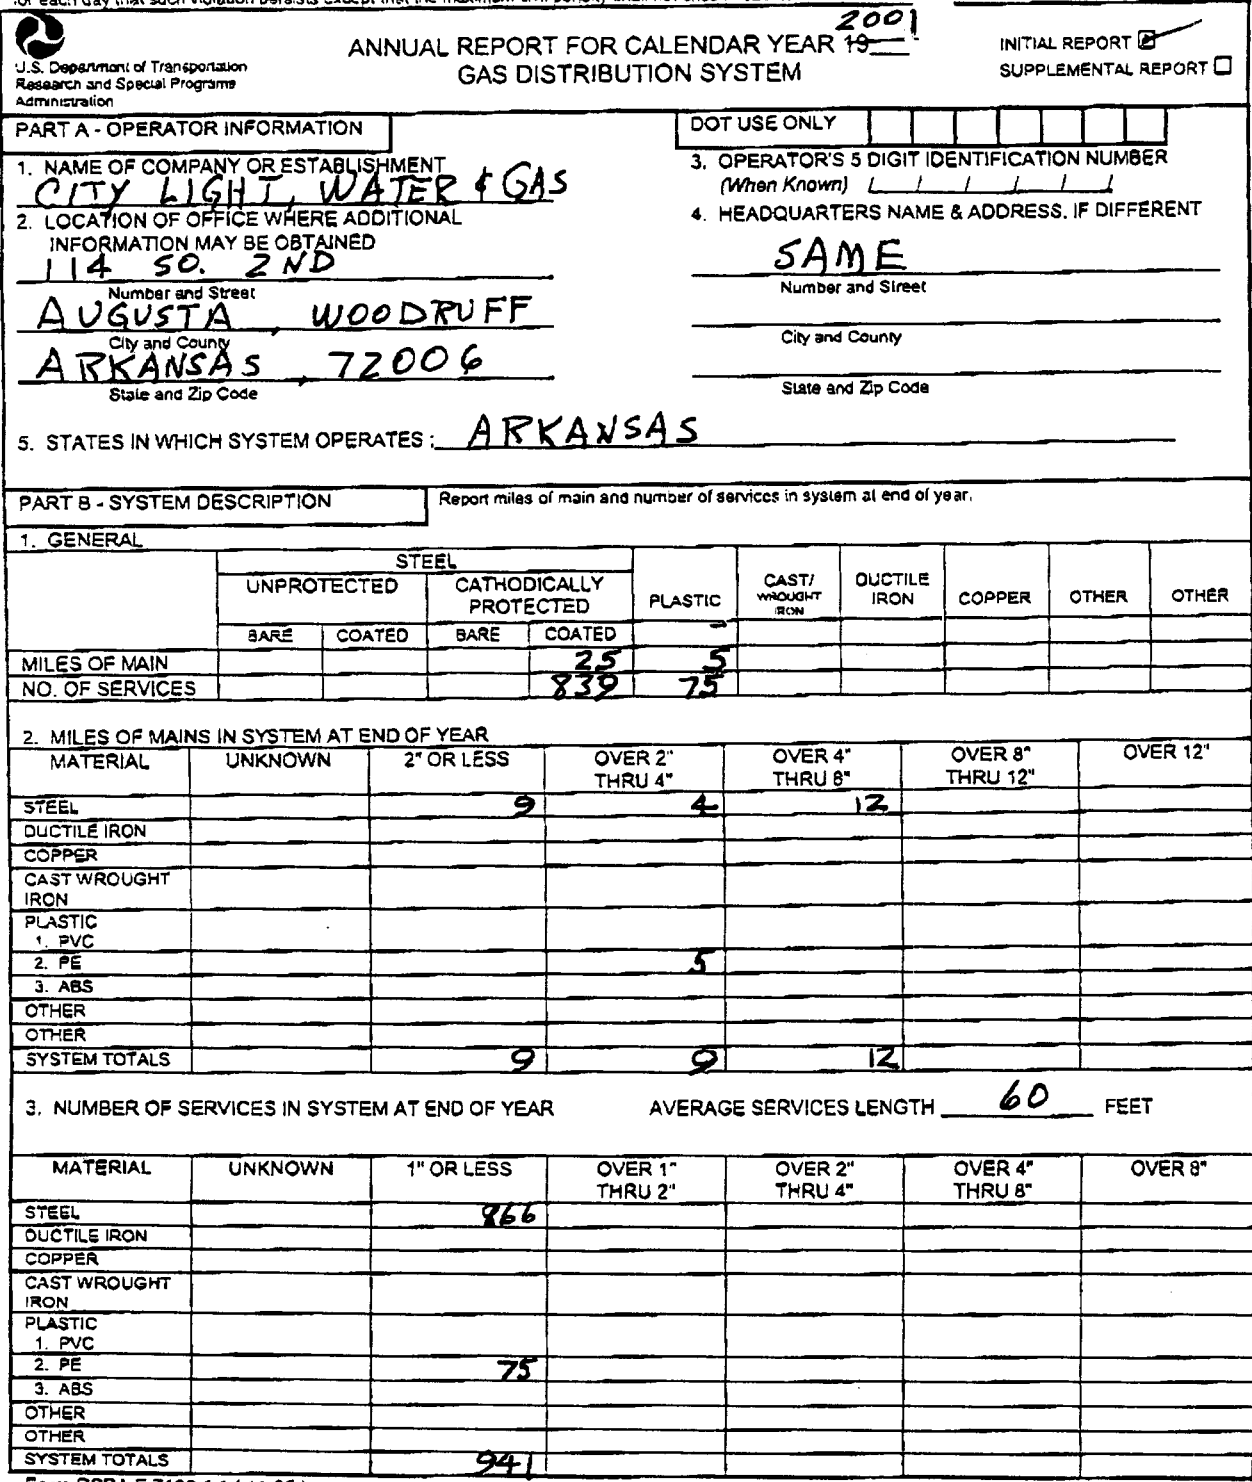 2001
ANNUAL REPORT FOR CALENDAR YEAR 19
GAS DISTRIBUTION SYSTEM
INITIAL REPORT ☑
SUPPLEMENTAL REPORT ☐
U.S. Department of Transportation
Research and Special Programs
Administration
PART A - OPERATOR INFORMATION
DOT USE ONLY
1. NAME OF COMPANY OR ESTABLISHMENT
CITY LIGHT, WATER & GAS
2. LOCATION OF OFFICE WHERE ADDITIONAL
INFORMATION MAY BE OBTAINED
114 SO. 2ND
Number and Street
AUGUSTA, WOODRUFF
City and County
ARKANSAS, 72006
State and Zip Code
3. OPERATOR'S 5 DIGIT IDENTIFICATION NUMBER
(When Known)
4. HEADQUARTERS NAME & ADDRESS, IF DIFFERENT
SAME
Number and Street
City and County
State and Zip Code
5. STATES IN WHICH SYSTEM OPERATES: ARKANSAS
PART B - SYSTEM DESCRIPTION
Report miles of main and number of services in system at end of year.
1. GENERAL
STEEL
UNPROTECTED CATHODICALLY PROTECTED PLASTIC CAST/ WROUGHT IRON DUCTILE IRON COPPER OTHER OTHER
BARE COATED BARE COATED
MILES OF MAIN 25 5
NO. OF SERVICES 839 75
2. MILES OF MAINS IN SYSTEM AT END OF YEAR
MATERIAL UNKNOWN 2" OR LESS OVER 2" THRU 4" OVER 4" THRU 8" OVER 8" THRU 12" OVER 12"
STEEL 9 4 12
DUCTILE IRON
COPPER
CAST WROUGHT
IRON
PLASTIC
1. PVC
2. PE 5
3. ABS
OTHER
OTHER
SYSTEM TOTALS 9 9 12
3. NUMBER OF SERVICES IN SYSTEM AT END OF YEAR AVERAGE SERVICES LENGTH 60 FEET
MATERIAL UNKNOWN 1" OR LESS OVER 1" THRU 2" OVER 2" THRU 4" OVER 4" THRU 8" OVER 8"
STEEL 866
DUCTILE IRON
COPPER
CAST WROUGHT
IRON
PLASTIC
1. PVC
2. PE 75
3. ABS
OTHER
OTHER
SYSTEM TOTALS 941